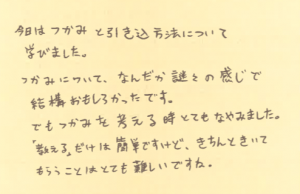 今日はつかみと引き込方法について
学びました。
つかみについて、なんだか謎々の感じで
結構おもしろかったです。
でもつかみを考える時とてもなやみました。
「教える」だけは簡単ですけど、きちんときいて
もらうことはとても難しいですね。